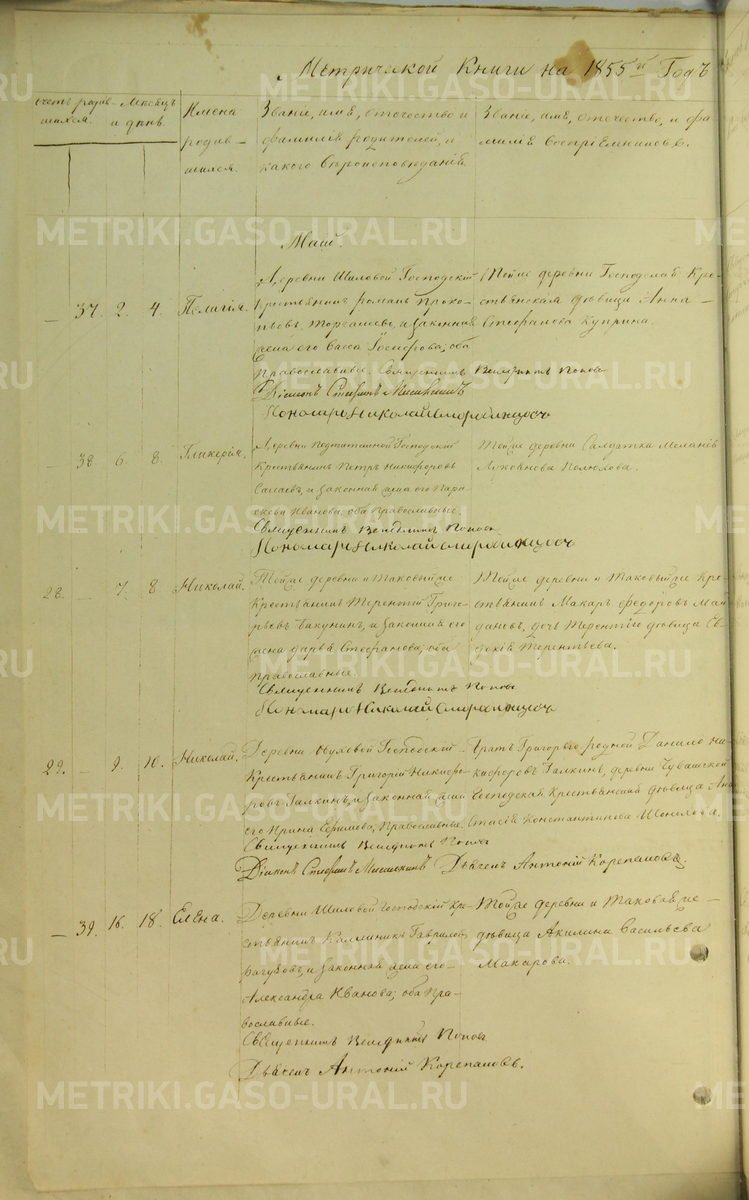 Метрической Книги на 1855й Годъ
счетъ родив- Месяцъ
шихся. и день.
Имена
родив-
шихся.
Званіе, имя, отчество и
фамилія родителей, и
какого вѣроисповѣданія.
Званіе, имя, отчество, и фа-
милія воспріемниковъ.
Маій.
— 37. 2. 4. Пелагія.
Деревни Шиловой Господскій
Крестьянинъ романъ Проко-
пьевъ и законная
жена его Васса оба
Православные. Священникъ Венедиктъ Попов
Діаконъ Стефанъ
Пономарь Николай
Тойже деревни Господская Кре-
стьянская дѣвица Анна
Стефанова Куприна.
— 38 6. 8. Гликерія.
Деревни Господскій
Крестьянинъ Петръ Никифоровъ
и законная жена его Пара-
скева Иванова, оба Православные.
Священникъ Венедиктъ Попов
Пономарь Николай
Тойже деревни Салдатка Меланія
28. — 7. 8 Николай.
Тойже деревни и Таковыйже
Крестьянинъ Терентій Григо-
рьевъ и законная его
жена дарья Стефанова; оба
православные.
Священникъ Венедиктъ Попов
Пономарь Николай
Тойже деревни и Таковыйже Кре-
стьянинъ Макаръ федоровъ Май-
дановъ, дочь Терентія дѣвица Ев-
докія Терентьева.
29. — 9. 10. Николай.
Деревни Господскій
Крестьянинъ Григорій Никифо-
ровъ Галкинъ, и законная жена
его Ирина Ефимова, Православные.
Священникъ Венедиктъ Попов
Діаконъ Стефанъ Дьячекъ Антоній Корепановъ.
братъ Григорья родной Данило Ни-
кифоровъ Галкинъ, деревни Чувашской
Господская Крестьянская дѣвица Ана-
стасія Константинова
— 39. 16. 18. Елена.
Деревни Шиловой Господскій Кре-
стьянинъ Каллиникъ Гавриловъ
и законная жена его
Александра Иванова; оба Пра-
вославные.
Священникъ Венедиктъ Попов
Дьячекъ Антоній Корепановъ.
Тойже деревни и Таковаяже
дѣвица Акилина Васильева
Макарова.
METRIKI.GASO-URAL.RU